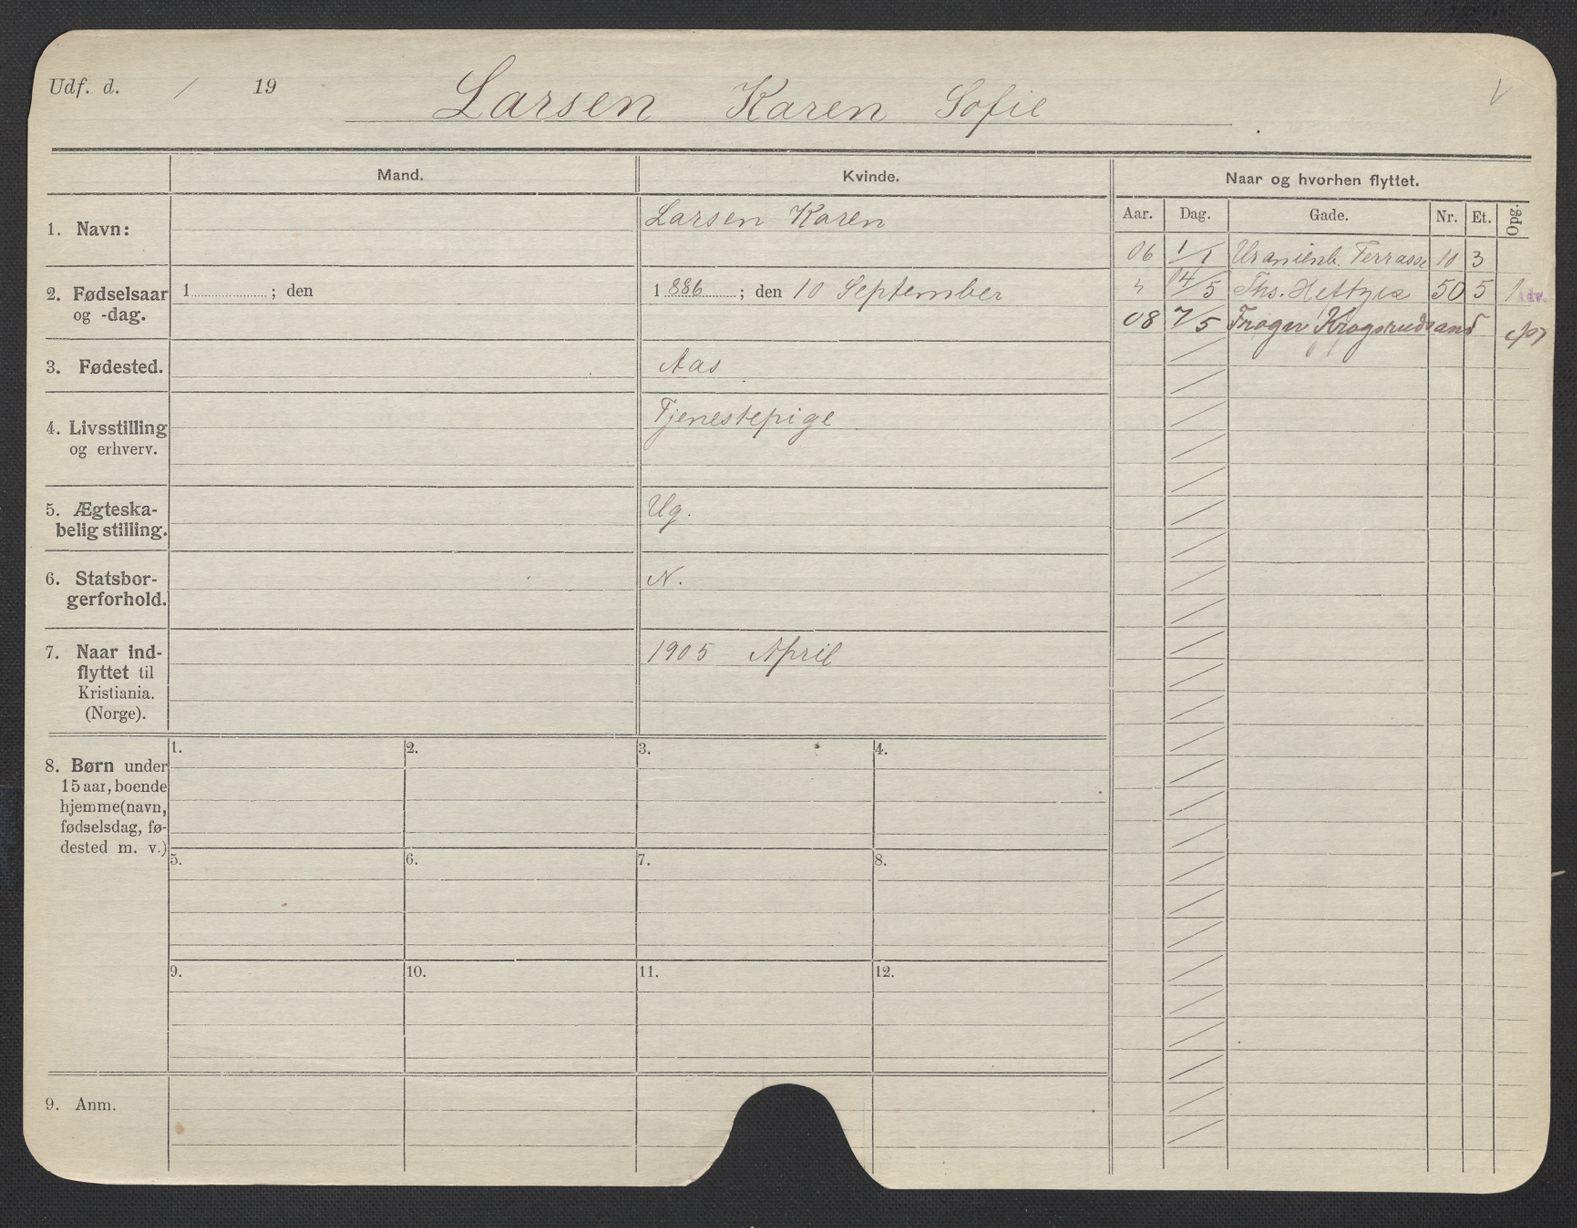 Udf. d. / 19
Larsen Karen Sofie
Mand.
Kvinde.
Naar og hvorhen flyttet.
Aar. Dag. Gade. Nr. Et. Opg.
1. Navn:
Larsen Karen
06 1/1 Uranienb. Terrasse 10 3
2. Fødselsaar
og -dag.
1 ; den
1 886 ; den 10 September
" 14/5 Ths. Heftyes 50 5
08 7/5 Frogn
3. Fødested.
Aas
4. Livsstilling
og erhverv.
Tjenestepige
5. Ægteska-
belig stilling.
Ug.
6. Statsbor-
gerforhold.
N.
7. Naar ind-
flyttet til
Kristiania.
(Norge).
1905 April
8. Børn under
15 aar, boende
hjemme (navn,
fødselsdag, fø-
dested m. v.)
1. 2. 3. 4.
5. 6. 7. 8.
9. 10. 11. 12.
9. Anm.